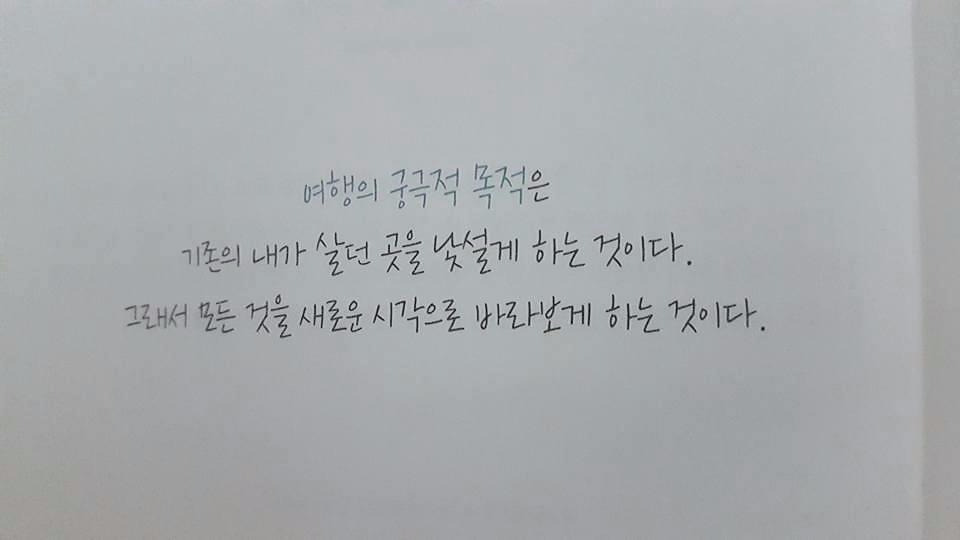 여행의 궁극적 목적은
기존의 내가 살던 곳을 낯설게 하는 것이다.
그래서 모든 것을 새로운 시각으로 바라보게 하는 것이다.